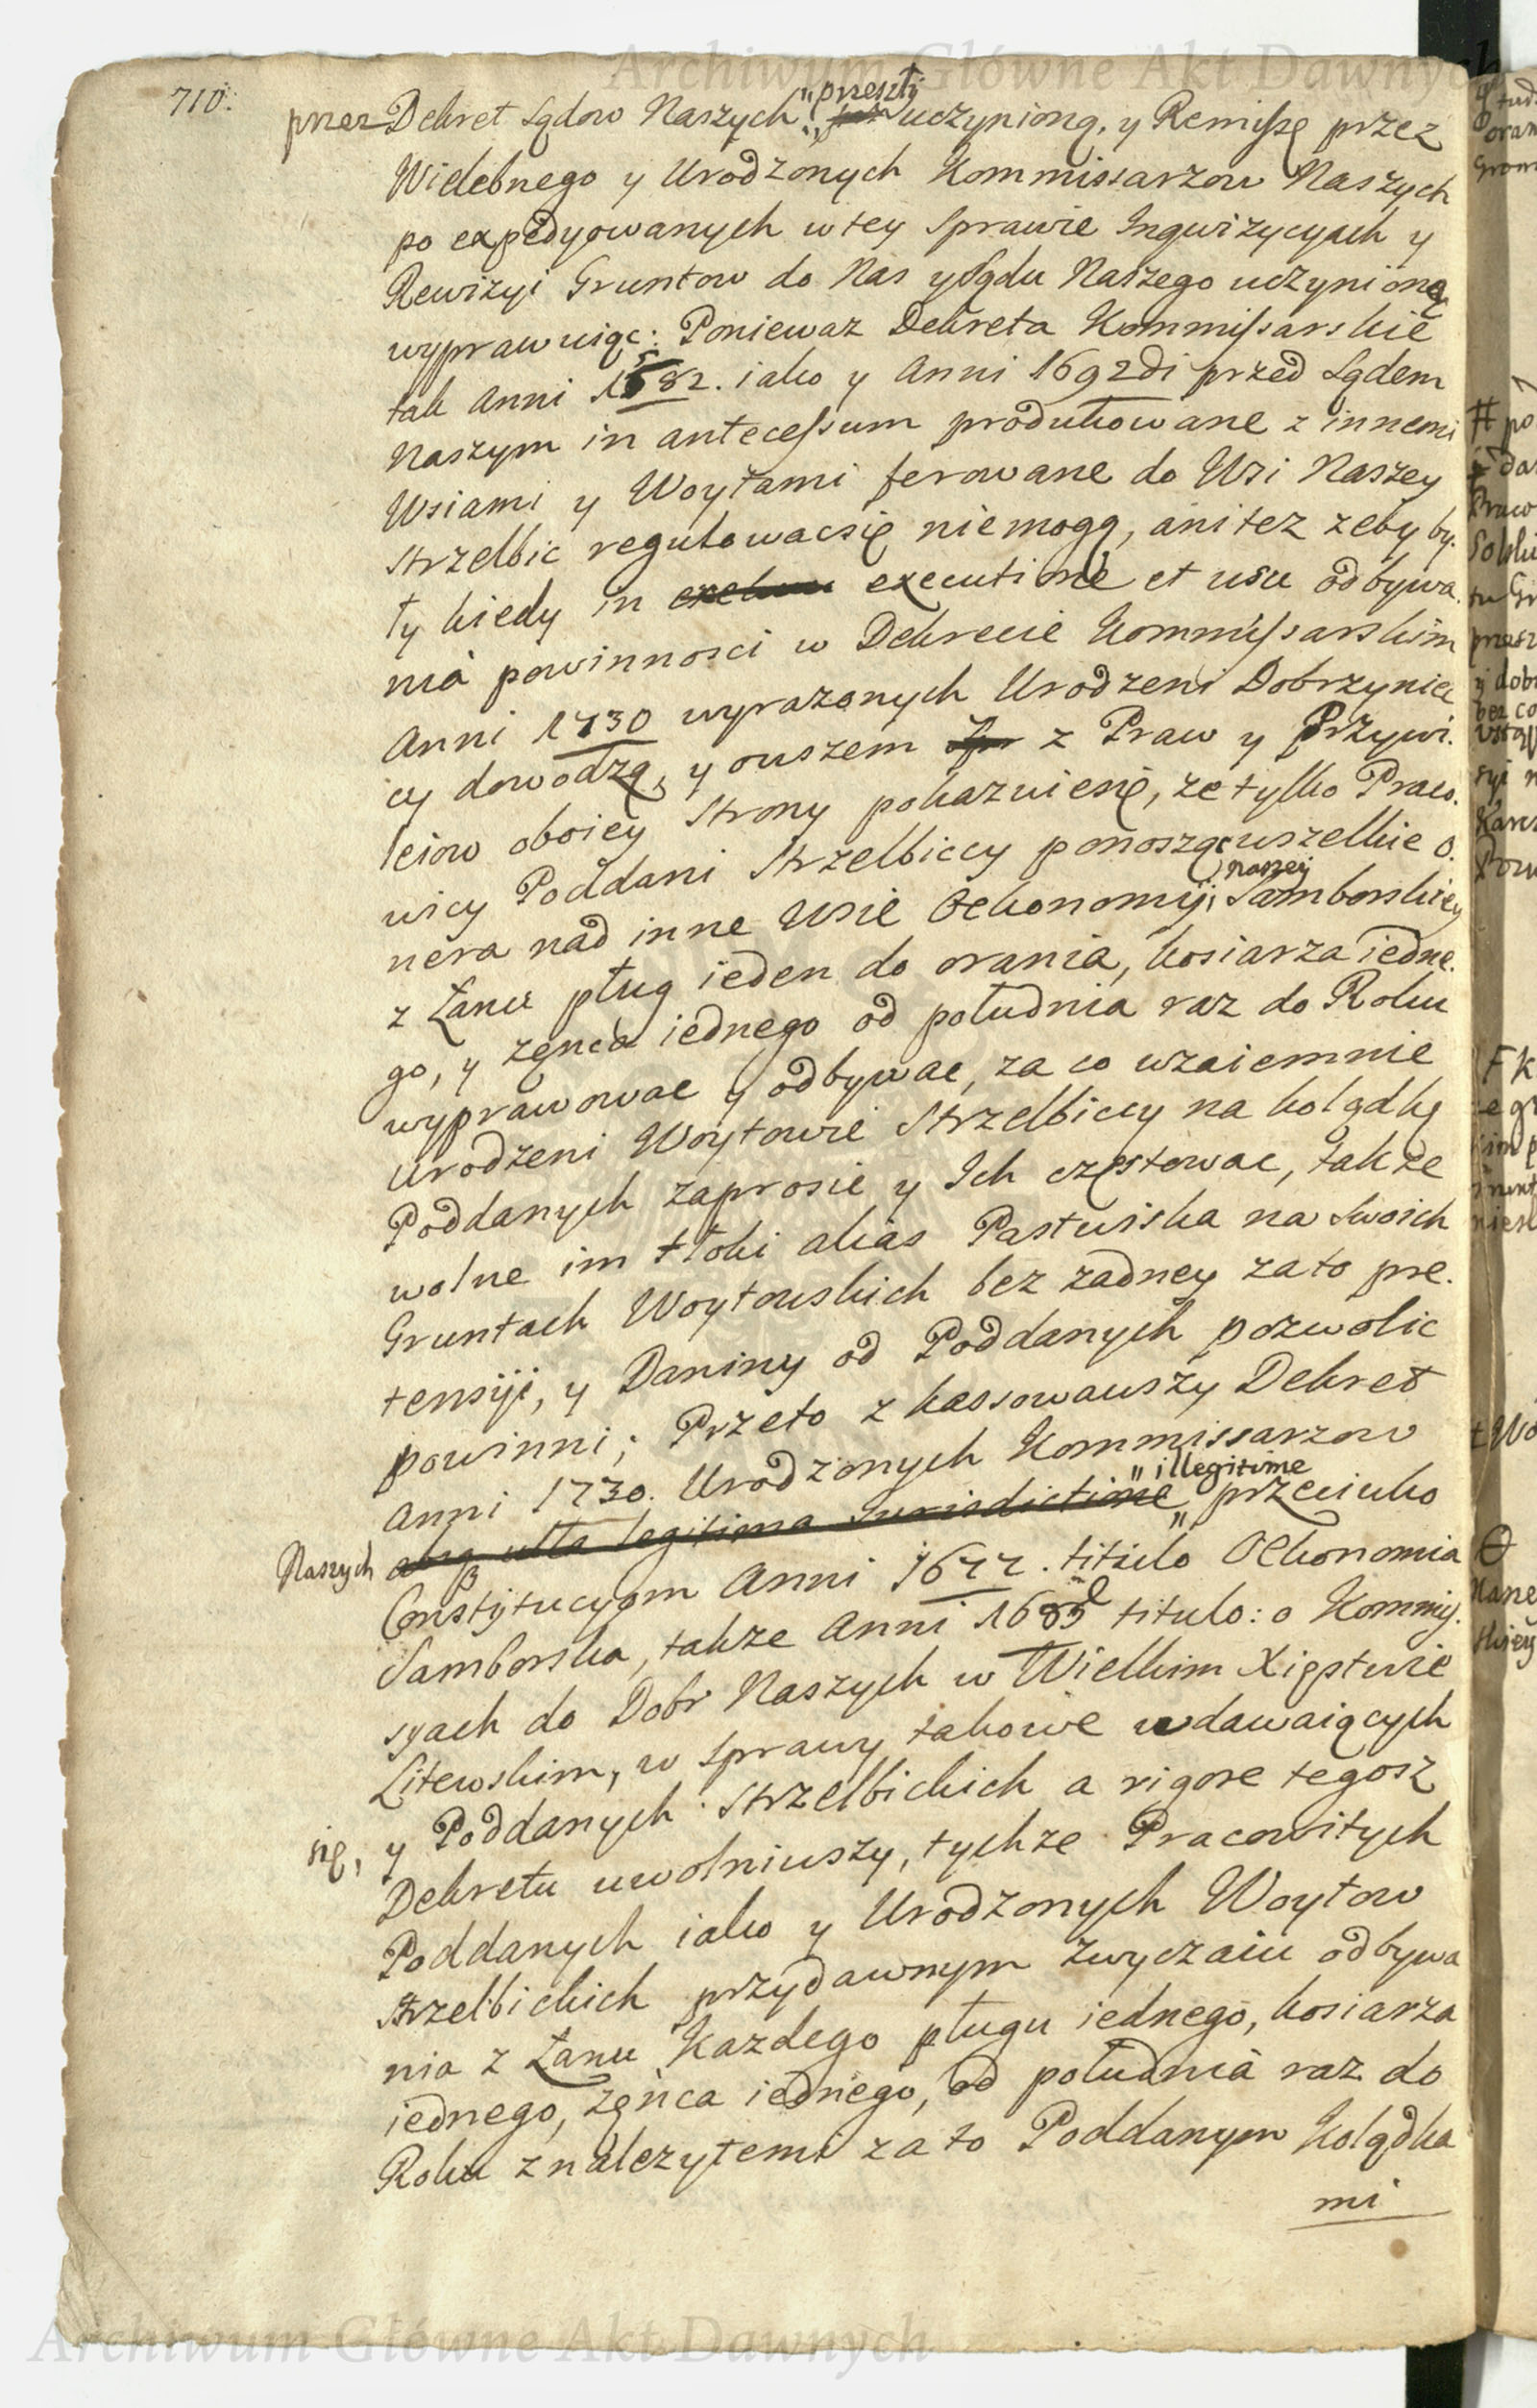 Archiwum Główne Akt Dawnych
710.
przez Dekret Sądow Naszych przeszły uczynioną, y Remissę przez
Wielebnego y Urodzonych Kommissarzow Naszych
po expedyowanych w tey Sprawie Inqwizycyach y
Rewizyi Gruntow do Nas y Sądu Naszego uczynioną
wyprawuiąc: Poniewaz Dekreta Kommissarskie
tak Anni 1582. iako y Anni 1692di przed Sądem
Naszym in antecessum produkowane z innemi
Wsiami y Woytami ferowane do Wsi Naszey
Strzelbic regulowac się niemogą, ani tez zeby by.
ły kiedy in executione et usu odbywa.
nia powinnosci w Dekrecie Kommissarskim
Anni 1730 wyrazonych Urodzeni Dobrzyniec
cy dowodzą, y owszem z Praw y Przywi.
leiow oboiey Strony pokazuie się, ze tylko Praco.
wicy Poddani Strzelbiccy ponosząc wszelkie o.
nera nad inne Wsie Oekonomij naszey Samborskiey
z Łanu pług ieden do orania, kosiarza iedne.
go, y zęnca iednego od południa raz do Roku
wyprawowac y odbywac, za co wzaiemnie
Urodzeni Woytowie Strzelbiccy na kolądkę
Poddanych zaprosic y Ich częstowac, takze
wolne im tłoki alias Pastwiska na Swoich
Gruntach Woytowskich bez zadney zato pre.
tensyi, y Daniny od Poddanych pozwolic
powinni; Przeto z kassowawszy Dekret
Anni 1730. Urodzonych Kommissarzow
Naszych absq ulla legitima Jurisdictione illegitime przeciwko
Constytucyom Anni 1677. titulo Oekonomia
Samborska, takze Anni 1685 titulo: o Kommis.
syach do Dobr Naszych w Wielkim Xięstwie
Litewskim, w Sprawy takowe wdawaiących
się, y Poddanych Strzelbickich a rigore tegosz
Dekretu uwolniwszy, tychze Pracowitych
Poddanych iako y Urodzonych Woytow
Strzelbickich przy dawnym zwyczaiu odbywa
nia z Łanu Kazdego pługu iednego, kosiarza
iednego, zęnca iednego, od południa raz do
Roku z nalezytemi za to Poddanym Kolądka
mi
Archiwum Główne Akt Dawnych